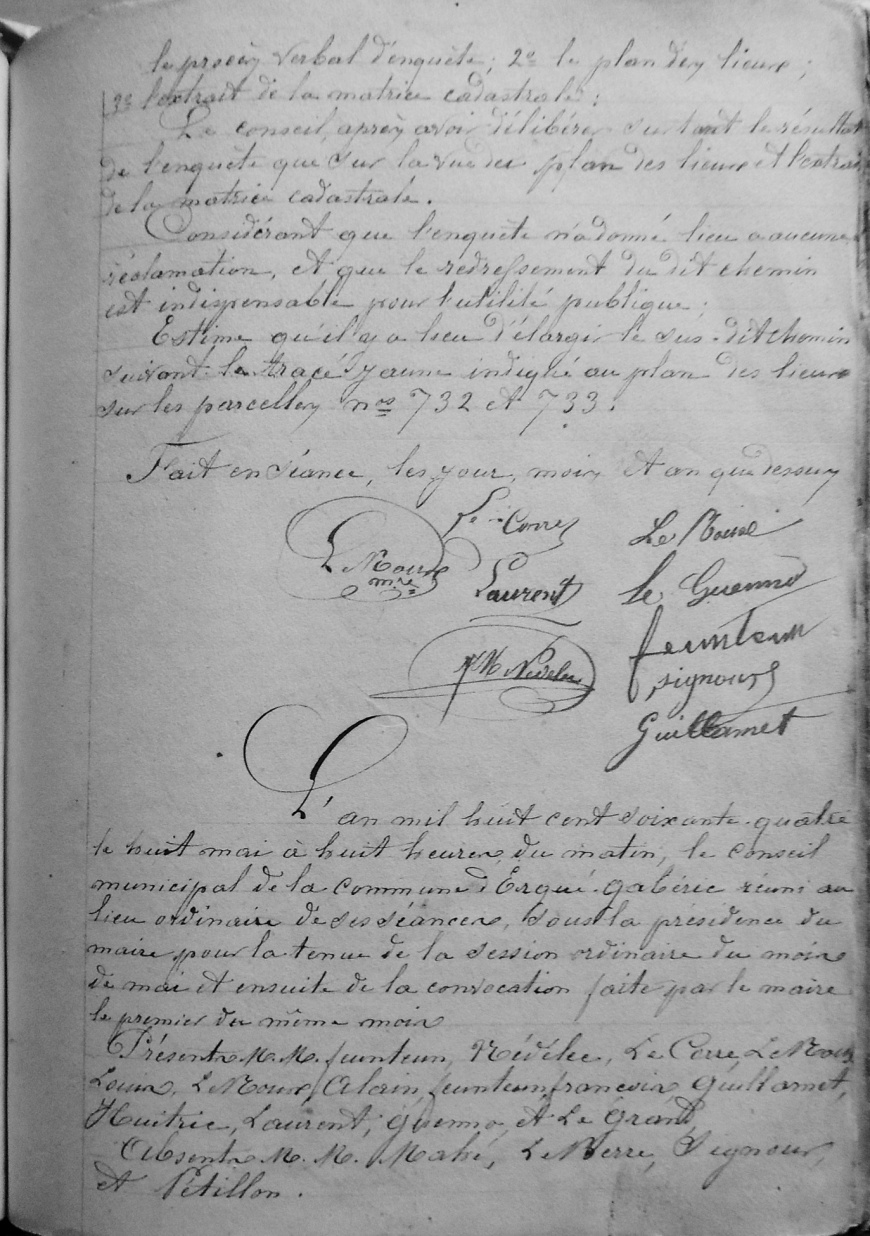 le procès verbal d'enquête ; 2º le plan des lieux ;
3º l'extrait de la matrice cadastrale ;
Le conseil, après avoir délibérer sur tant le résultat
de l'enquête que sur la vue du plan des lieux et l'extrait
de la matrice cadastrale.
Considérant que l'enquête n'a donné lieu a aucune
réclamation, et que le redressement du dit chemin
est indispensable pour l'utilité publique ;
Estime qu'il y a lieu d'élargir le sus-dit chemin
suivant le tracé jaune indiqué au plan des lieux
sur les parcelles nos 732 et 733.
Fait en séance, les jour, mois et an que dessus
Le Corre
mre
Laurent
Le Guenno
feunteun
Signour
Guillamet
L'an mil huit cent soixante-quatre
le huit mai à huit heures du matin, le conseil
municipal de la commune d'Ergué-gabéric réuni au
lieu ordinaire de ses séances, sous la présidence du
maire pour la tenue de la session ordinaire du mois
de mai et ensuite de la convocation faite par le maire
le premier du même mois
Présents M.M. feunteun, Nédélec, Le Corre, Le Roux
Louis, Le Roux Alain, feunteun françois, Guillamet,
Huitric, Laurent, guenno, et Le grand,
Absents M. M. Mahé, Le Berre, Signour,
et Pétillon.